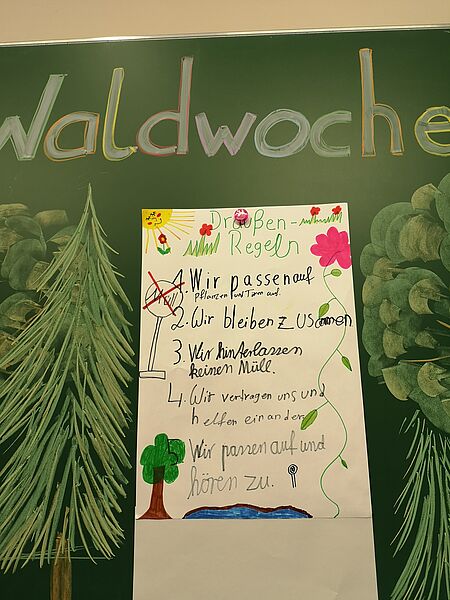 Waldwoche
Draußen-
Regeln
1. Wir passen auf
pflanzen und Tiere auf.
2. Wir bleiben zusammen
3. Wir hinterlassen
keinen Müll.
4. Wir vertragen uns und
helfen einander
Wir passen auf und
hören zu.